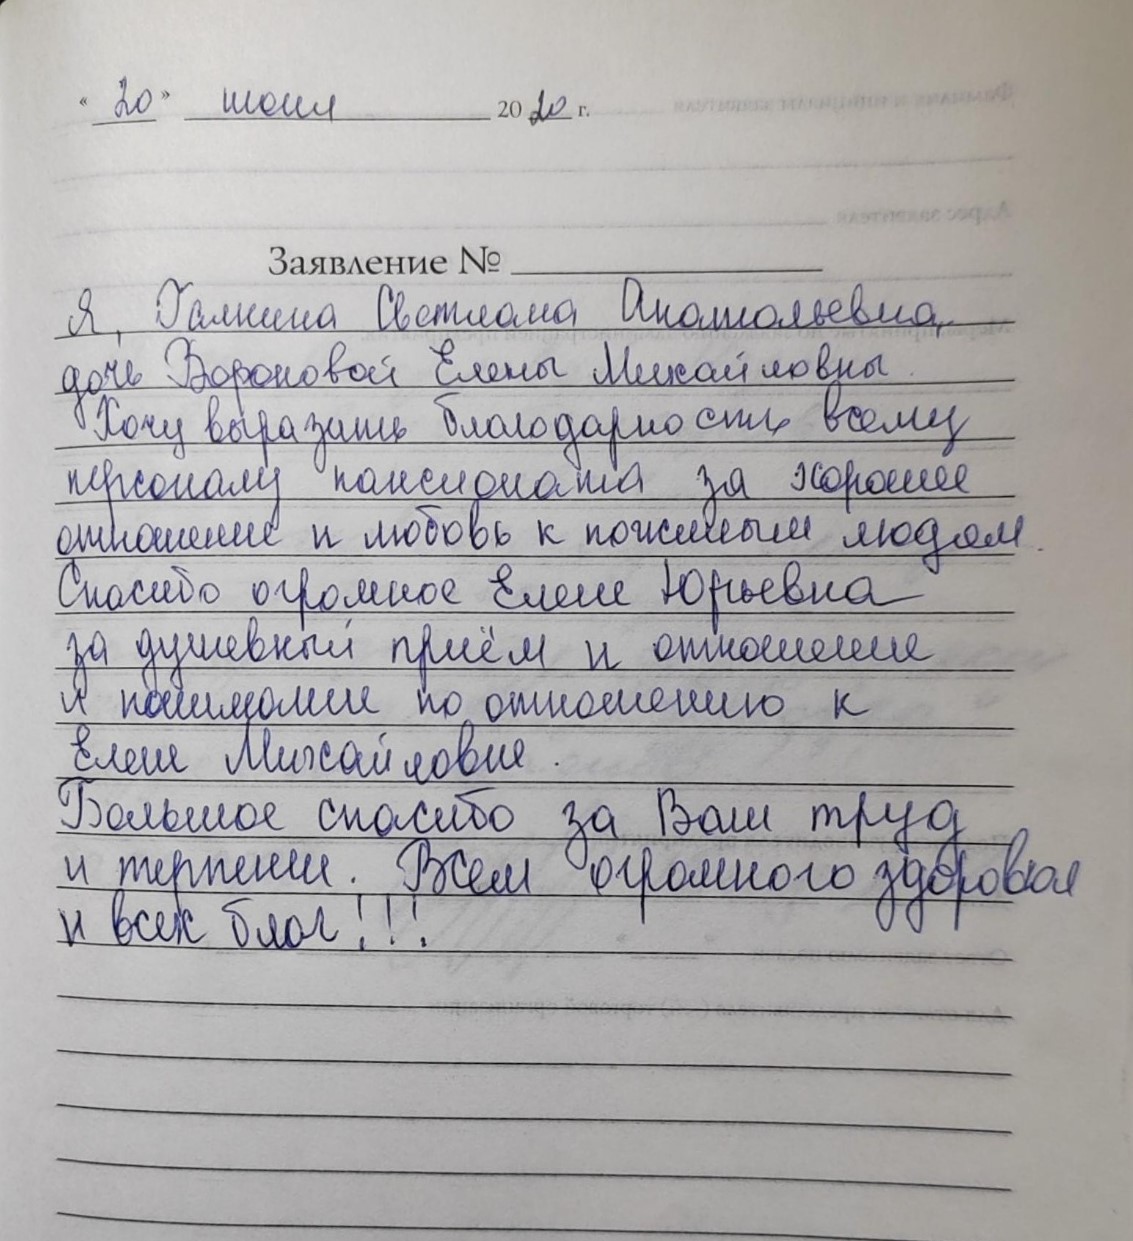 « 20 » июля 2020 г.
Заявление №
Я, Галкина Светлана Анатольевна,
дочь Вороновой Елены Михайловны.
Хочу выразить благодарность всему
персоналу пансионата за хорошее
отношение и любовь к пожилым людям.
Спасибо огромное Елене Юрьевна
за душевный приём и отношение
и понимание по отношению к
Елене Михайловне.
Большое спасибо за Ваш труд
и терпение. Всем огромного здоровья
и всех благ!!!